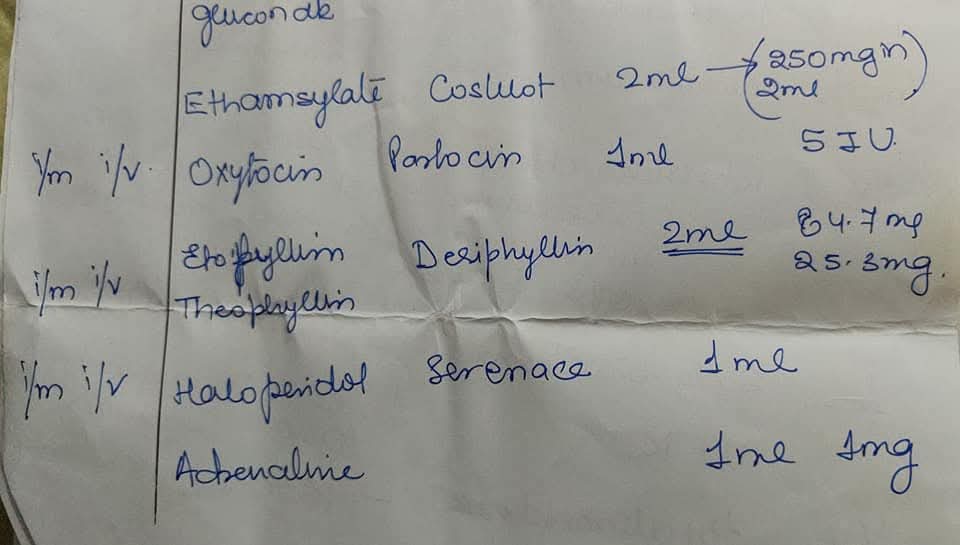 gluconate
Ethamsylate Cosklot 2ml → (250mg in
2ml)
i/m i/v. Oxytocin Partocin 1ml 5 IU.
Etophyllin Deriphyllin 2ml 84.7 mg
i/m i/v Theophyllin 25.3mg.
i/m i/v Haloperidol Serenace 1ml
Adrenaline 1ml 1mg